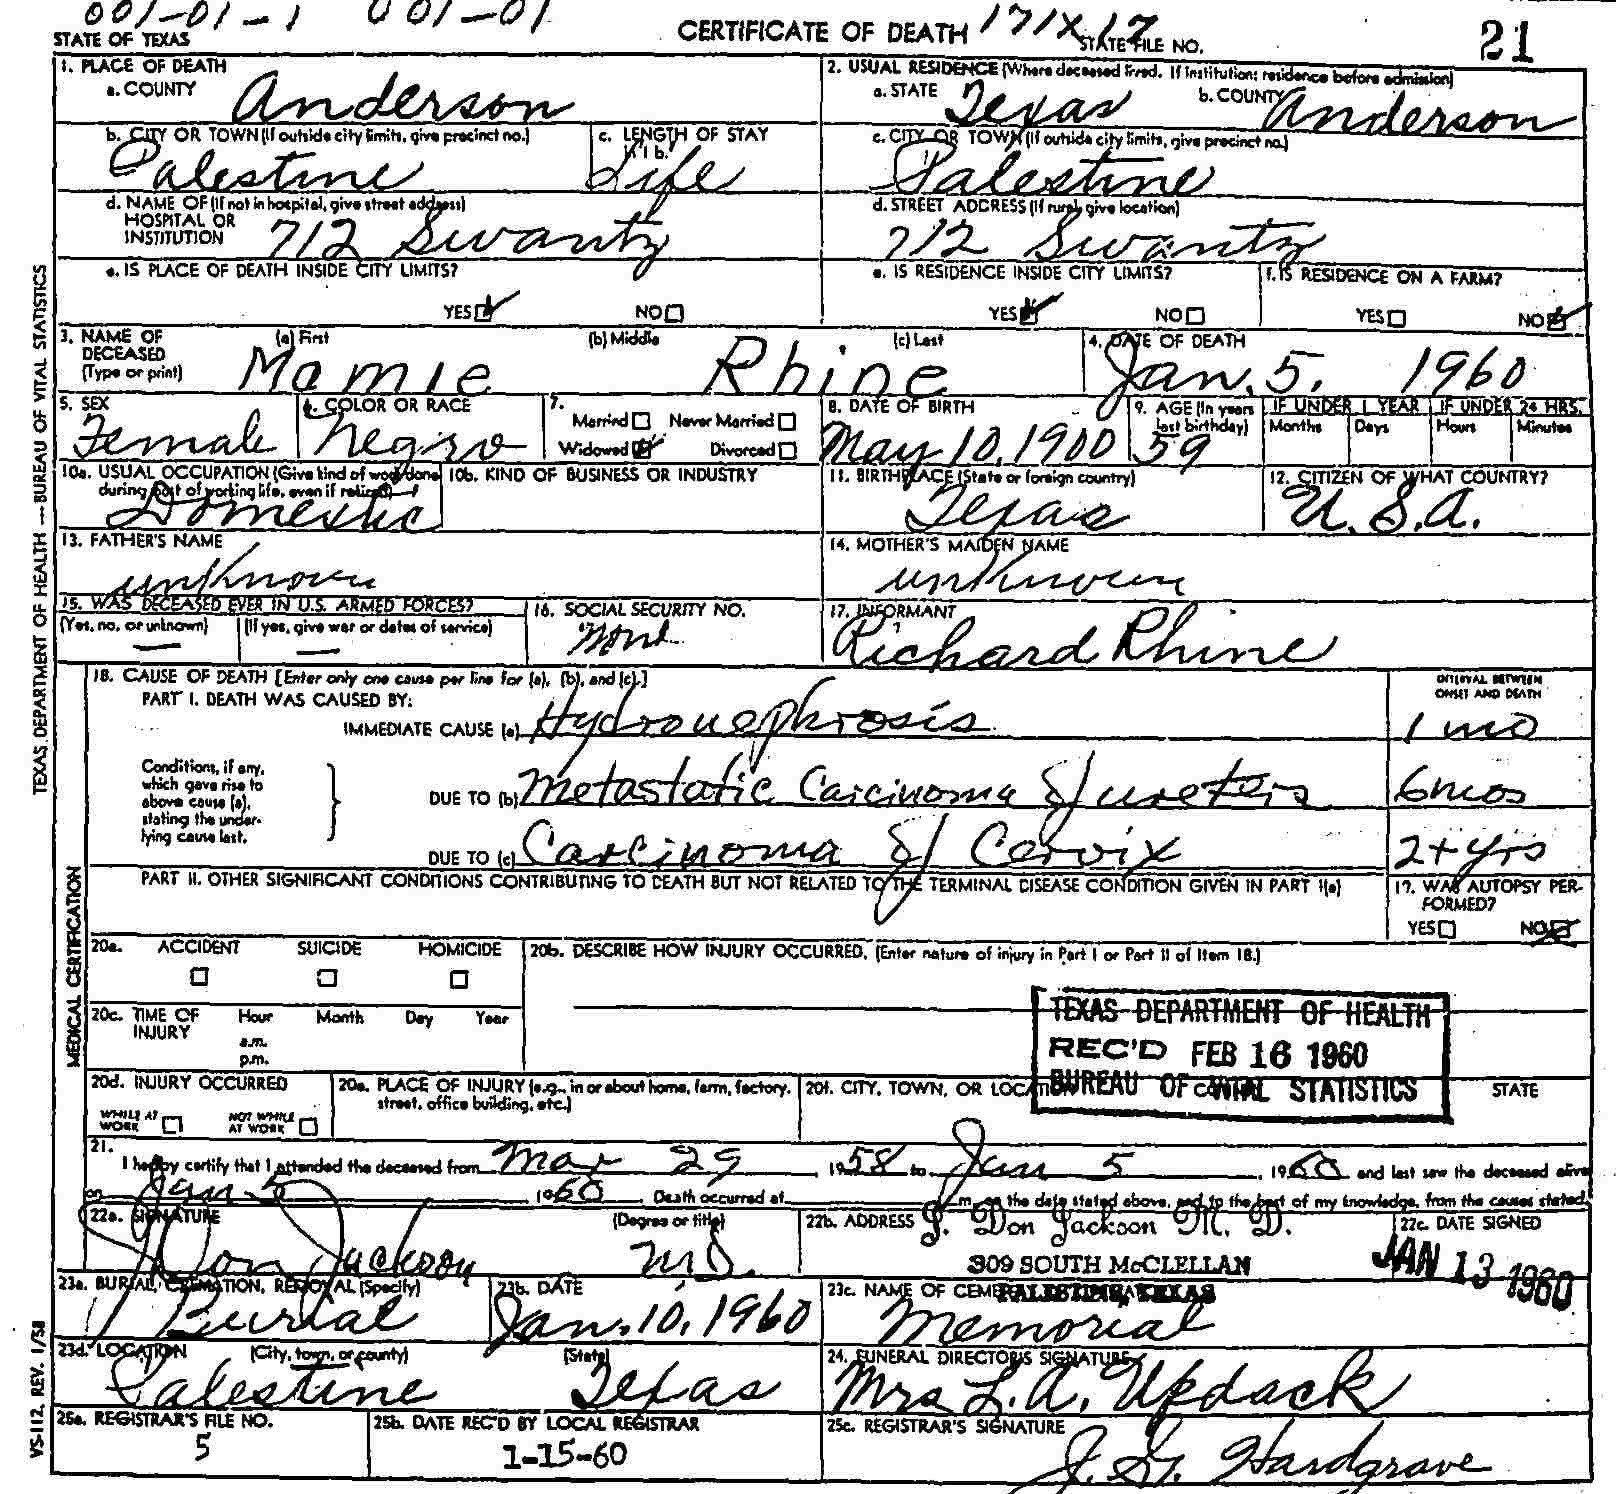 001-01-1 001-01
STATE OF TEXAS CERTIFICATE OF DEATH 171X17 STATE FILE NO. 21
1. PLACE OF DEATH 2. USUAL RESIDENCE (Where deceased lived. If institution: residence before admission)
a. COUNTY Anderson a. STATE Texas b. COUNTY Anderson
b. CITY OR TOWN (If outside city limits, give precinct no.) c. LENGTH OF STAY in 1 b. c. CITY OR TOWN (If outside city limits, give precinct no.)
Palestine Life Palestine
d. NAME OF (If not in hospital, give street address) HOSPITAL OR INSTITUTION 712 Swantz d. STREET ADDRESS (If rural, give location) 712 Swantz
e. IS PLACE OF DEATH INSIDE CITY LIMITS? e. IS RESIDENCE INSIDE CITY LIMITS? f. IS RESIDENCE ON A FARM?
YES NO YES NO YES NO
3. NAME OF DECEASED (Type or print) (a) First (b) Middle (c) Last 4. DATE OF DEATH
Mamie Rhine Jan. 5. 1960
5. SEX 6. COLOR OR RACE 7. Married Never Married Widowed Divorced 8. DATE OF BIRTH 9. AGE (In years last birthday) IF UNDER 1 YEAR IF UNDER 24 HRS.
Months Days Hours Minutes
Female Negro May 10, 1900 59
10a. USUAL OCCUPATION (Give kind of work done during most of working life, even if retired) 10b. KIND OF BUSINESS OR INDUSTRY 11. BIRTHPLACE (State or foreign country) 12. CITIZEN OF WHAT COUNTRY?
Domestic Texas U.S.A.
13. FATHER'S NAME 14. MOTHER'S MAIDEN NAME
unknown unknown
15. WAS DECEASED EVER IN U.S. ARMED FORCES? 16. SOCIAL SECURITY NO. 17. INFORMANT
(Yes, no, or unknown) (If yes, give war or dates of service)
— — None Richard Rhine
18. CAUSE OF DEATH [Enter only one cause per line for (a), (b), and (c).] INTERVAL BETWEEN ONSET AND DEATH
PART I. DEATH WAS CAUSED BY:
IMMEDIATE CAUSE (a) Hydronephrosis 1 mo
Conditions, if any, which gave rise to above cause (a), stating the underlying cause last.
DUE TO (b) Metastatic Carcinoma of ureters 6 mos
DUE TO (c) Carcinoma of Cervix 2+ yrs
PART II. OTHER SIGNIFICANT CONDITIONS CONTRIBUTING TO DEATH BUT NOT RELATED TO THE TERMINAL DISEASE CONDITION GIVEN IN PART I(a) 19. WAS AUTOPSY PERFORMED?
YES NO
20a. ACCIDENT SUICIDE HOMICIDE 20b. DESCRIBE HOW INJURY OCCURRED. (Enter nature of injury in Part I or Part II of Item 18.)
20c. TIME OF INJURY Hour Month Day Year
a.m.
p.m.
TEXAS DEPARTMENT OF HEALTH
REC'D FEB 16 1960
BUREAU OF VITAL STATISTICS
20d. INJURY OCCURRED 20e. PLACE OF INJURY (e.g., in or about home, farm, factory, street, office building, etc.) 20f. CITY, TOWN, OR LOCATION COUNTY STATE
WHILE AT WORK NOT WHILE AT WORK
21. I hereby certify that I attended the deceased from Mar 29 1958 to Jan 5 1960 and last saw the deceased alive
Jan 5 1960 Death occurred at m. on the date stated above, and to the best of my knowledge, from the causes stated.
22a. SIGNATURE (Degree or title) 22b. ADDRESS J. Don Jackson M. D. 22c. DATE SIGNED
J Don Jackson M.D. 309 SOUTH McCLELLAN JAN 13 1960
PALESTINE, TEXAS
23a. BURIAL, CREMATION, REMOVAL (Specify) 23b. DATE 23c. NAME OF CEMETERY
Burial Jan. 10, 1960 Memorial
23d. LOCATION (City, town, or county) (State) 24. FUNERAL DIRECTOR'S SIGNATURE
Palestine Texas Mrs L. A. Updack
25a. REGISTRAR'S FILE NO. 25b. DATE REC'D BY LOCAL REGISTRAR 25c. REGISTRAR'S SIGNATURE
5 1-15-60 J. G. Hardgrave
TEXAS DEPARTMENT OF HEALTH — BUREAU OF VITAL STATISTICS
MEDICAL CERTIFICATION
VS-112, REV. 1/58